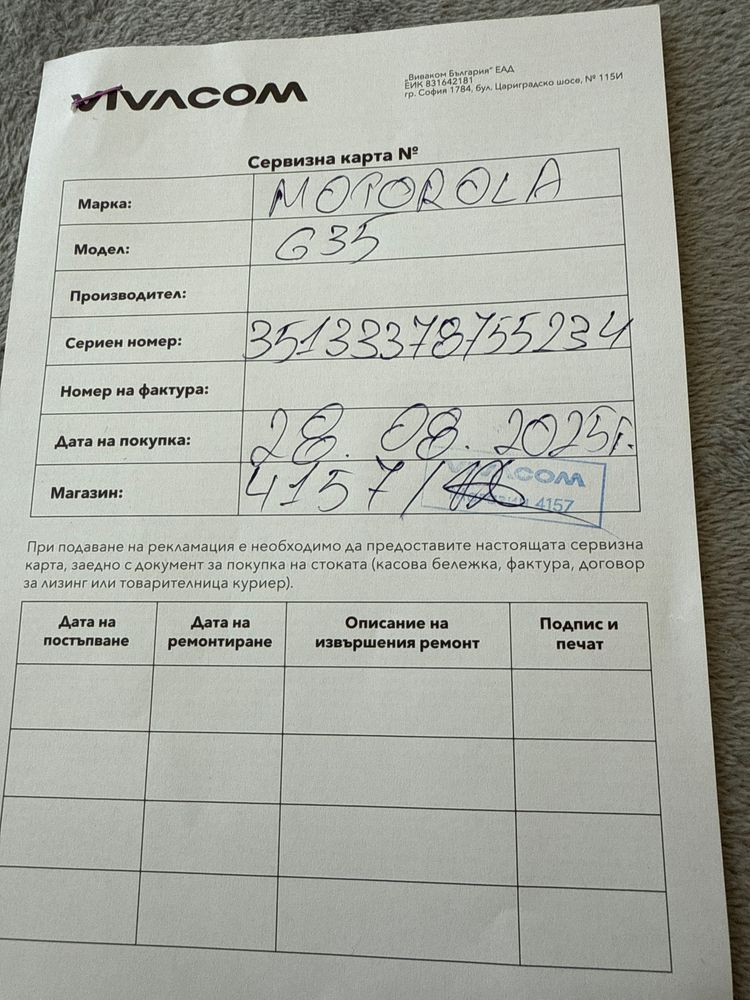 VIVACOM
„Виваком България“ ЕАД
ЕИК 831642181
гр. София 1784, бул. Цариградско шосе, № 115И
Сервизна карта №
Марка: MOTOROLA
Модел: G35
Производител:
Сериен номер: 351333378755234
Номер на фактура:
Дата на покупка: 28.08.2025г.
Магазин: 4157/
VIVACOM
4157
При подаване на рекламация е необходимо да предоставите настоящата сервизна
карта, заедно с документ за покупка на стоката (касова бележка, фактура, договор
за лизинг или товарителница куриер).
Дата на постъпване
Дата на ремонтиране
Описание на извършения ремонт
Подпис и печат